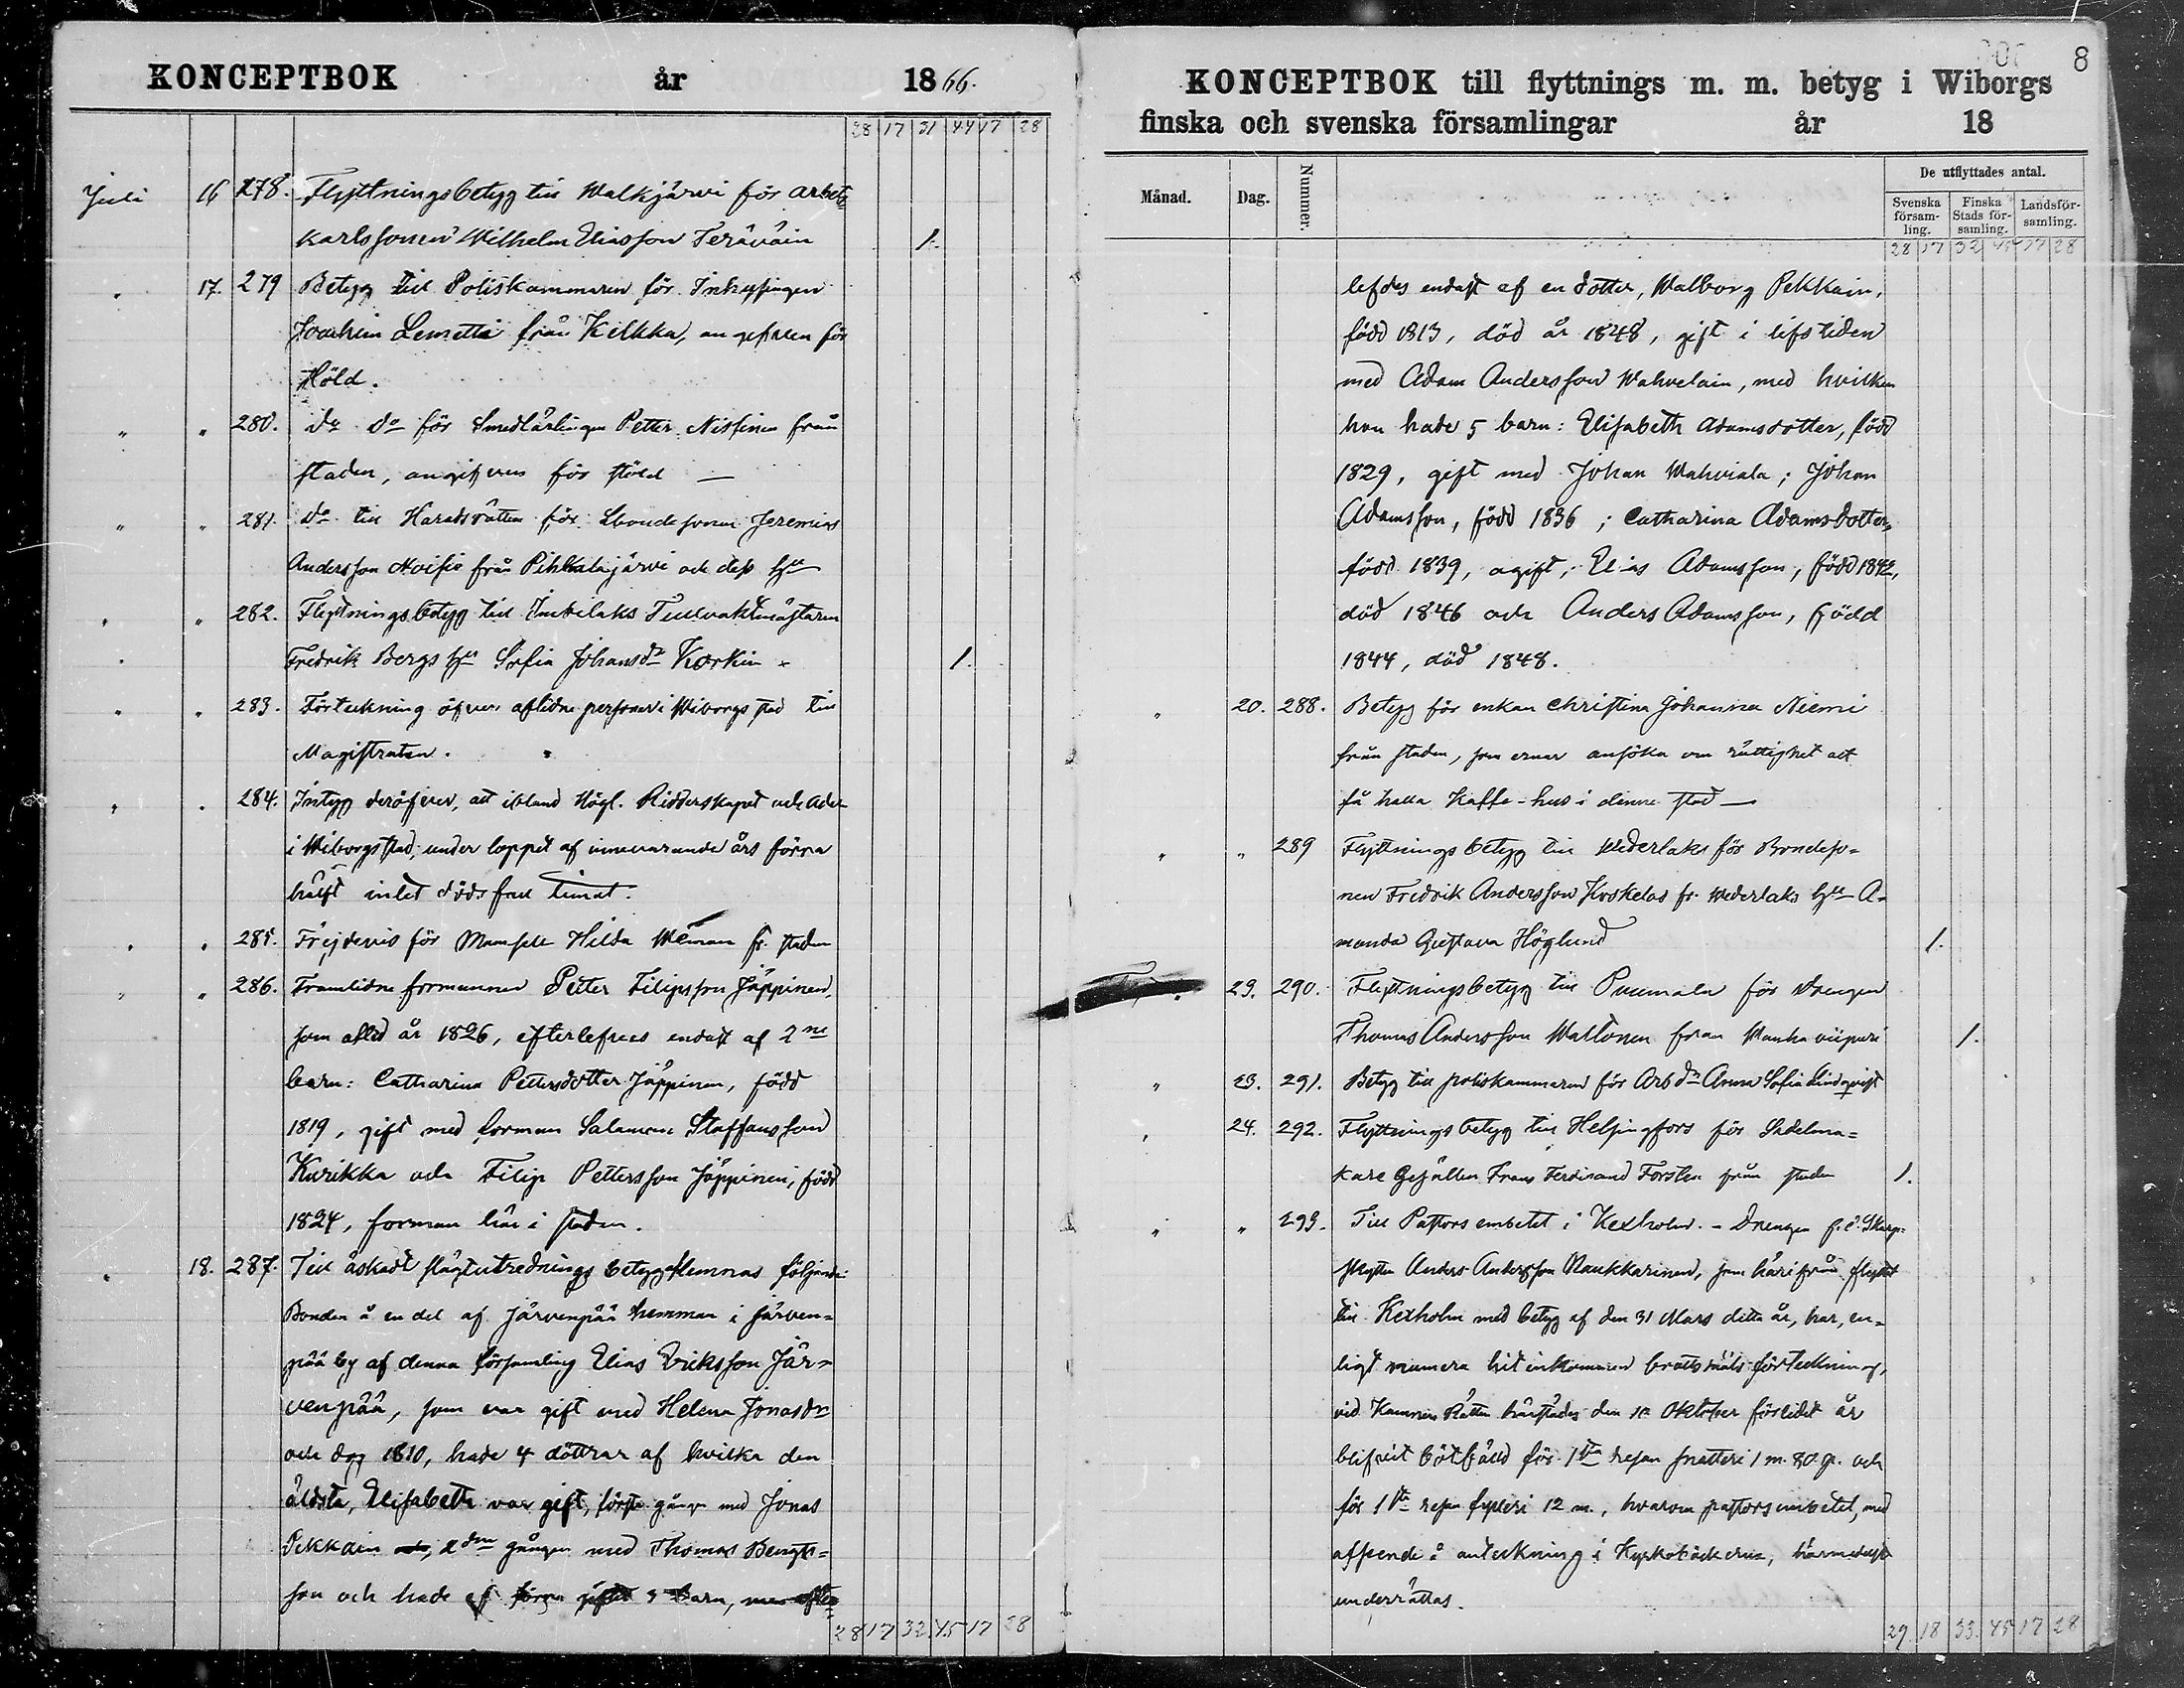 KONCEPTBOK år 1866.
28 17 31 44 17 28
Juli 16 278. Flyttningsbetyg till Walkjärvi för arbets-
karlssonen Wilhelm Eliasson Teräväin 1.
" 17. 279 Betyg till Poliskammaren för Inhysingen
Joachim Lemetti från Kelkka, angifven för
stöld.
" " 280. Do Do för Smedlärlingen Petter Nissinen från
staden, angifven för stöld —
" " 281. Do till Häradsrätten för Lbondesonen Jeremias
Andersson Moisio från Pihkalajärvi och dess hu
" " 282. Flyttningsbetyg till Imbilaks Tullvaktmästaren
Fredrik Bergs hu Sofia Johansdr Korkin 1.
" " 283. Förteckning öfver aflidne personer i Wiborgs stad till
Magistraten.
" " 284. Intyg deröfver, att ibland Högl. Ridderskapet och Adel
i Wiborgs stad, under loppet af innevarande års förra
hälft intet dödsfall timat.
" " 285. Frejdevis för Mamsell Hilda Wéman fr. staden
" " 286. Framlidne formannen Petter Filipsson Jäppinen,
som afled år 1826, efterlefves endast af 2ne
barn: Catharina Pettersdotter Jäppinen, född
1819, gift med forman Salamon Staffansson
Kurikka och Filip Pettersson Jäppinen, född
1824, forman här i staden.
" 18. 287. Till äskadt slägtutrednings betyg lemnas följande:
Bonden å en del af Järvenpää hemman i Järven-
pää by af denna församling Elias Eriksson Jär-
venpää, som var gift med Helena Jonasdr
och dog 1810, hade 4 döttrar af hvilka den
äldsta, Elisabeth var gift, första gången med Jonas
Pekkain, 2dra gången med Thomas Bengts-
son och hade af förra giftet 3 barn, men efter-
28 17 32 45 17 28
8
KONCEPTBOK till flyttnings m. m. betyg i Wiborgs
finska och svenska församlingar år 18
Månad. Dag. Nummer. De utflyttades antal.
Svenska församling. Finska Stads församling. Landsförsamling.
28 17 32 45 17 28
lefdes endast af en dotter, Walborg Pekkain,
född 1813, död år 1848, gift i lifstiden
med Adam Andersson Wahvelain, med hvilken
hon hade 5 barn: Elisabeth Adamsdotter, född
1829, gift med Johan Wahviala; Johan
Adamsson, född 1836; Catharina Adamsdotter,
född 1839, ogift; Elias Adamsson, född 1842,
död 1846 och Anders Adamsson, född
1844, död 1848.
" 20. 288. Betyg för enkan Christina Johanna Niemi
från staden, som ernar ansöka om rättighet att
få hålla Kaffe-hus i denne stad —
" " 289 Flyttningsbetyg till Wederlaks för Bondeso-
nen Fredrik Andersson Koskelas fr. Wederlaks hu A-
manda Gustava Höglund 1.
23. 290. Flyttningsbetyg till Puumala för Drengen
Thomas Andersson Waltonen från Wanha wiipuri 1.
" 23. 291. Betyg till poliskammaren för Arb dr Anna Sofia Lindqvist
" 24. 292. Flyttningsbetyg till Helsingfors för Sadelma-
kare Gesällen Frans Ferdinand Forsten från staden 1.
" " 293. Till Pastors embetet i Kexholm. – Drengen f. d. Skarp-
skytten Anders Andersson Naukkarinen, som härifrån flyttat
till Kexholm med betyg af den 31 Mars detta år, har, en-
ligt numera hit inkommen brottmåls förteckning,
vid Kämners Rätten härstädes den 10 Oktober förlidet år
blifvit bötfälld för 1sta resan snatteri 1 m. 80 p. och
för 1sta resan fylleri 12 m., hvarom pastorsembetet, med
afseende å anteckning i Kyrkoböckerna, härmedelst
underrättas.
29. 18 33. 45 17 28